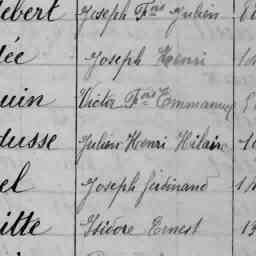 ebert Joseph Fçois Julien
ée Joseph Henri
uin Victor Fçois Emmanuel
dusse Julien Henri Hilaire
el Joseph Ferdinand
itte Isidore Ernest